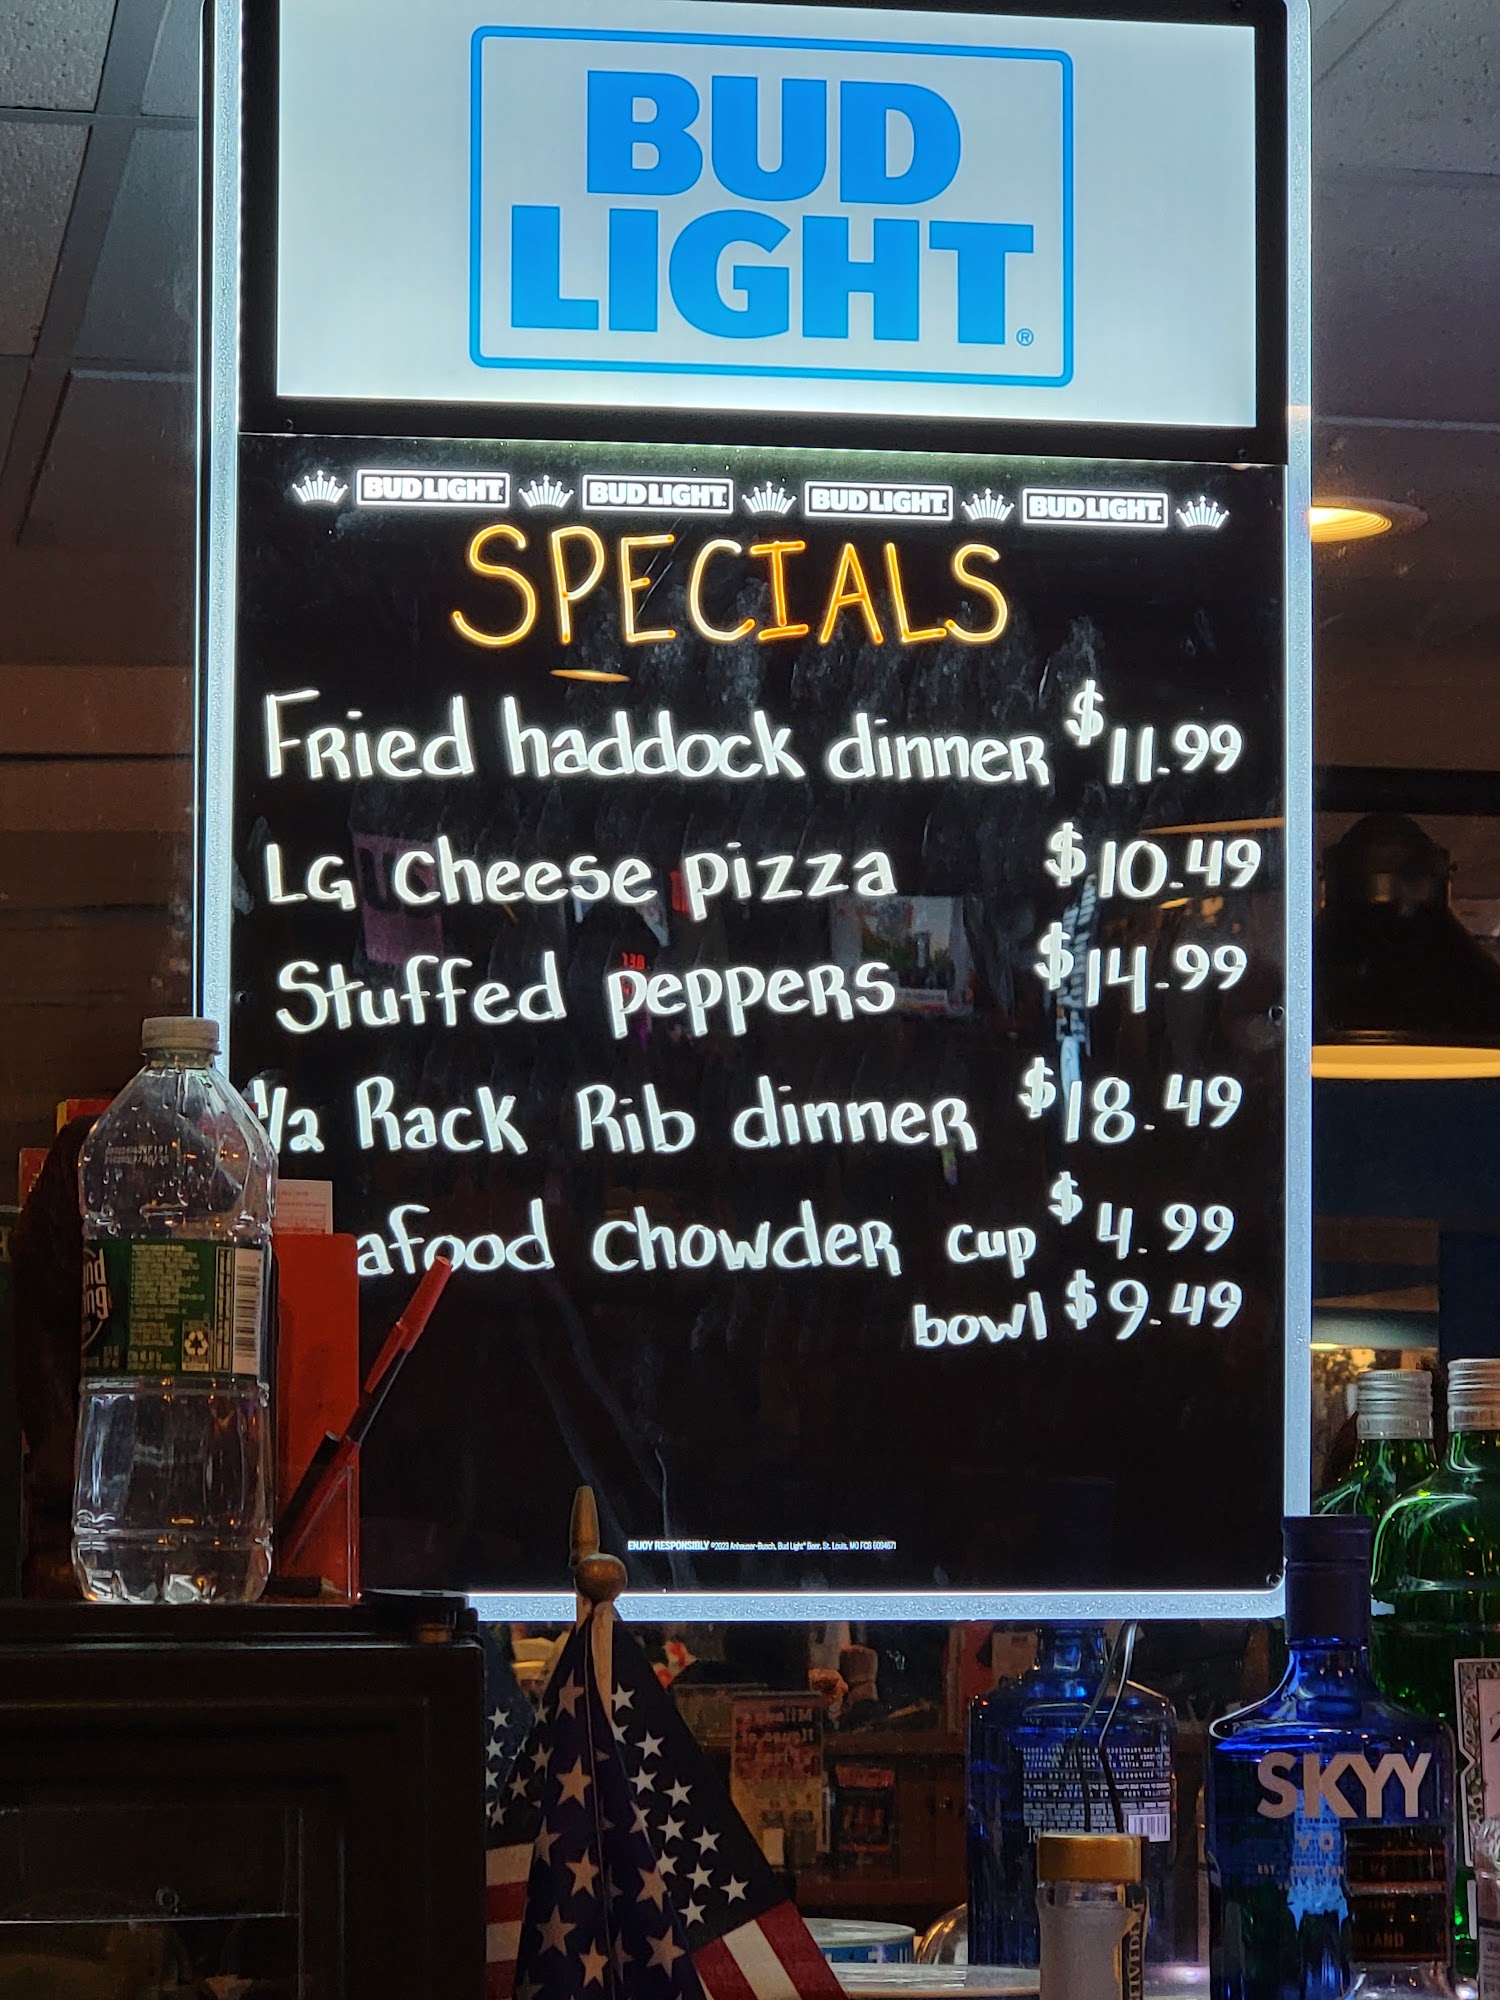 BUD
LIGHT
®
BUD LIGHT BUD LIGHT BUD LIGHT BUD LIGHT
SPECIALS
Fried haddock dinner $11.99
LG cheese pizza $10.49
Stuffed peppers $14.99
1/2 Rack Rib dinner $18.49
afood chowder cup $4.99
bowl $9.49
ENJOY RESPONSIBLY ©2023 Anheuser-Busch, Bud Light® Beer, St. Louis, MO
SKYY